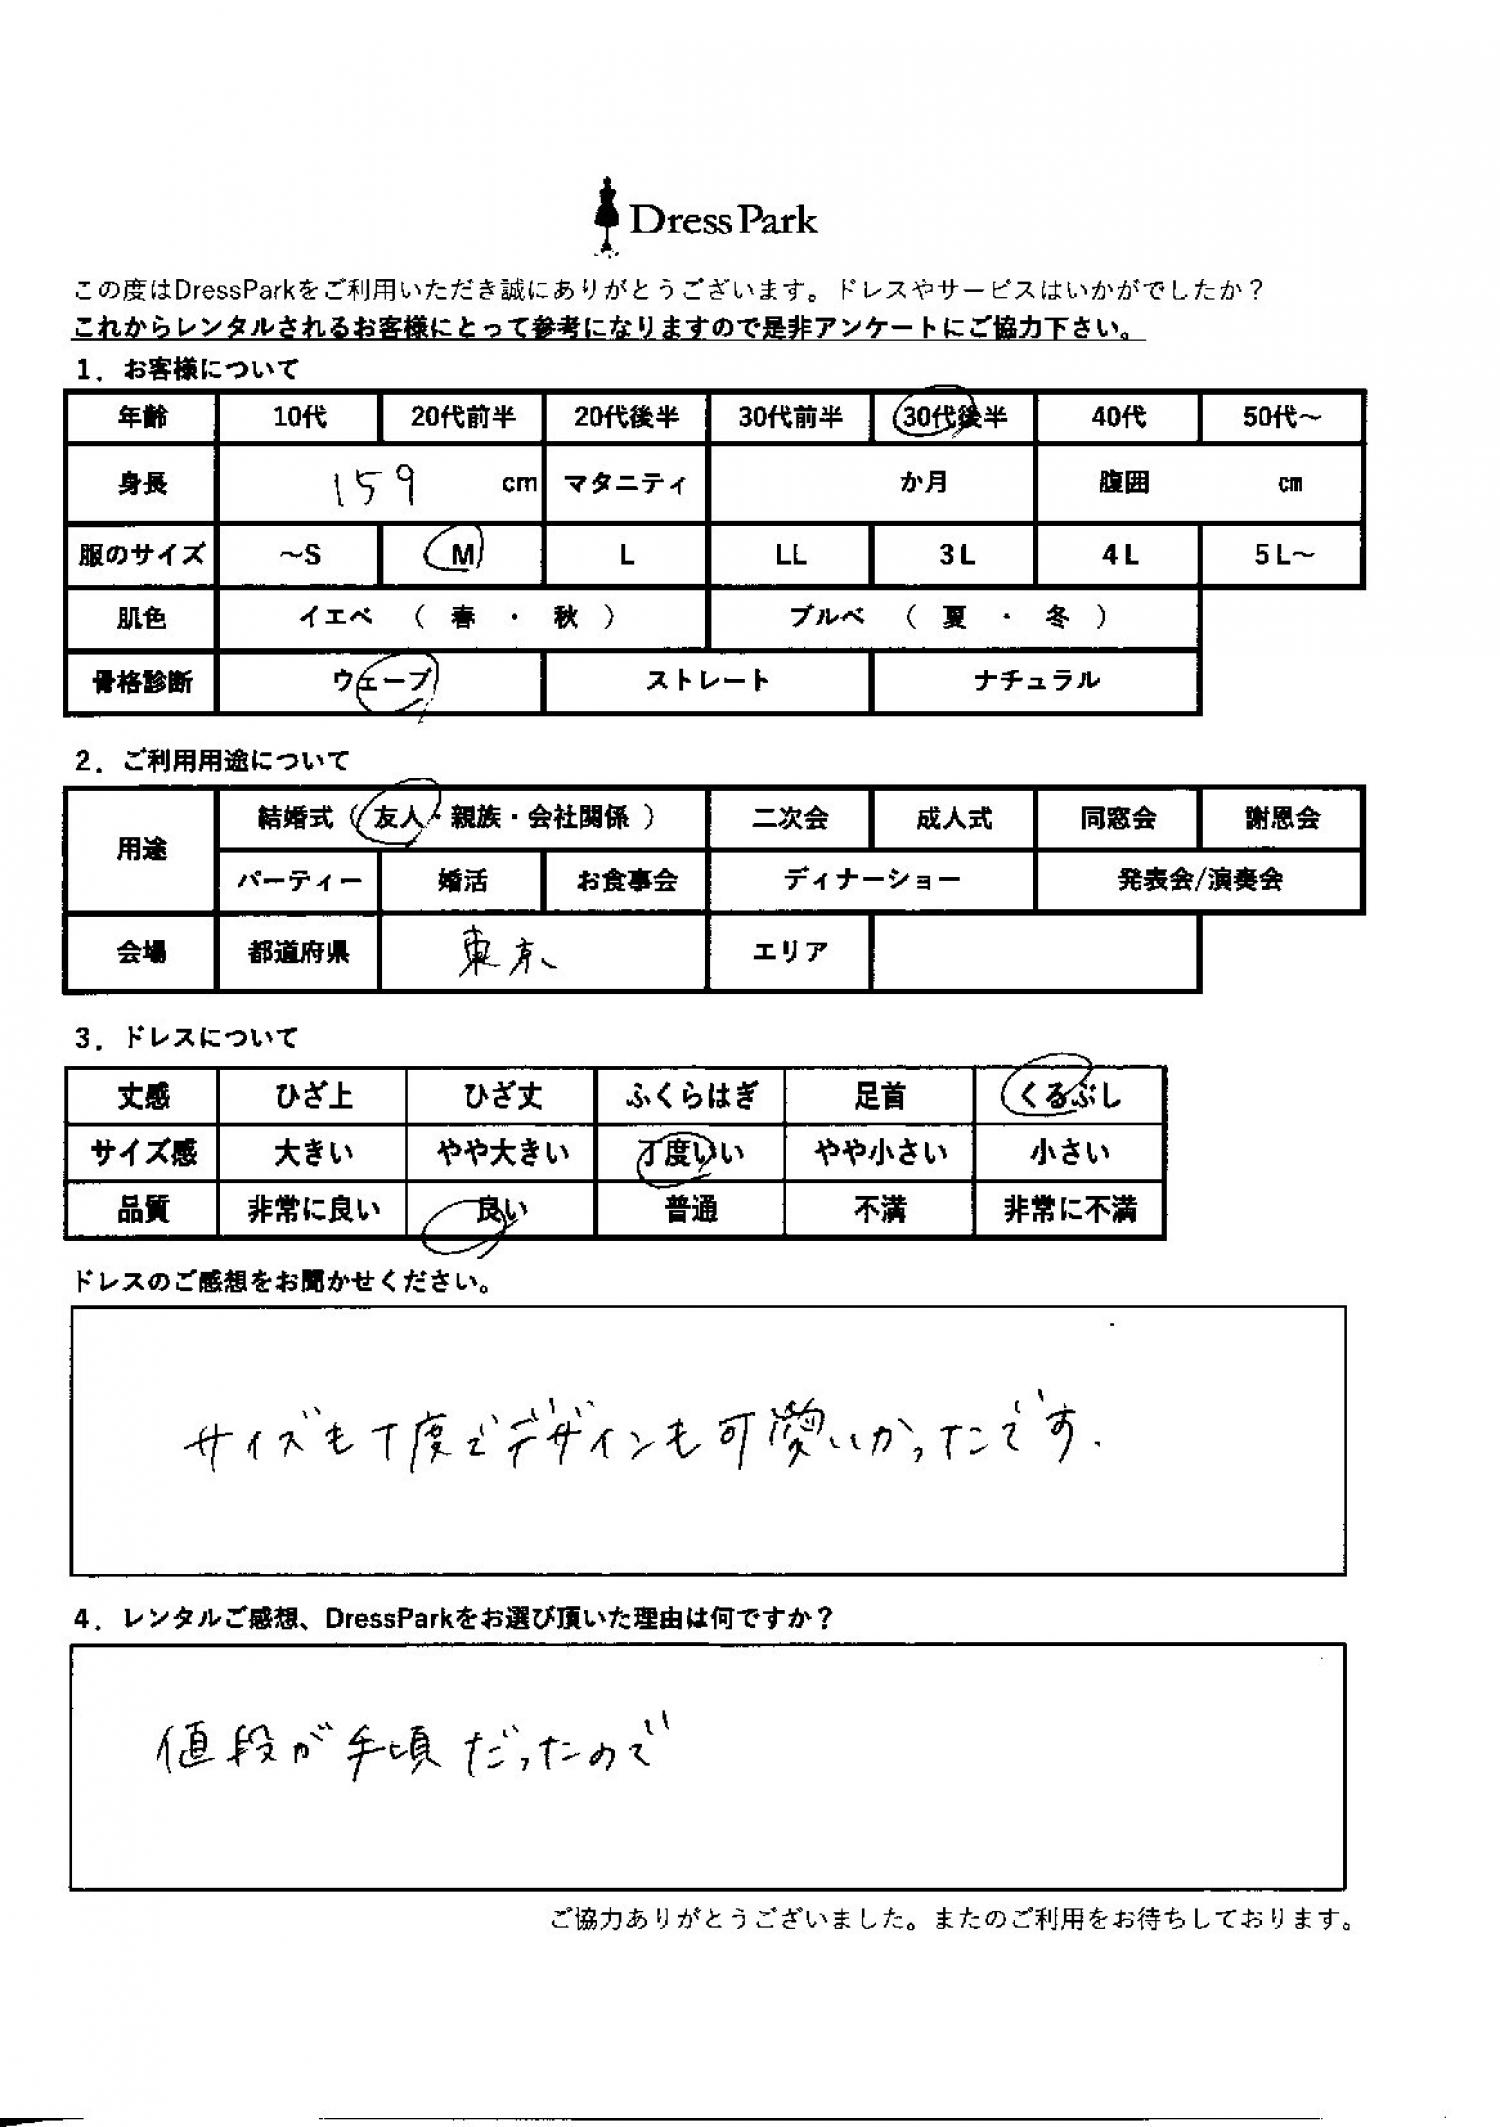 Dress Park
この度はDressParkをご利用いただき誠にありがとうございます。ドレスやサービスはいかがでしたか？
これからレンタルされるお客様にとって参考になりますので是非アンケートにご協力下さい。
1．お客様について
年齢 10代 20代前半 20代後半 30代前半 30代後半 40代 50代～
身長 159 cm マタニティ か月 腹囲 ㎝
服のサイズ ～S M L LL 3L 4L 5L～
肌色 イエベ （ 春 ・ 秋 ） ブルベ （ 夏 ・ 冬 ）
骨格診断 ウェーブ ストレート ナチュラル
2．ご利用用途について
用途 結婚式（友人・親族・会社関係） 二次会 成人式 同窓会 謝恩会
パーティー 婚活 お食事会 ディナーショー 発表会/演奏会
会場 都道府県 東京 エリア
3．ドレスについて
丈感 ひざ上 ひざ丈 ふくらはぎ 足首 くるぶし
サイズ感 大きい やや大きい 丁度いい やや小さい 小さい
品質 非常に良い 良い 普通 不満 非常に不満
ドレスのご感想をお聞かせください。
サイズも丁度でデザインも可愛いかったです.
4．レンタルご感想、DressParkをお選び頂いた理由は何ですか？
値段が手頃だったので
ご協力ありがとうございました。またのご利用をお待ちしております。